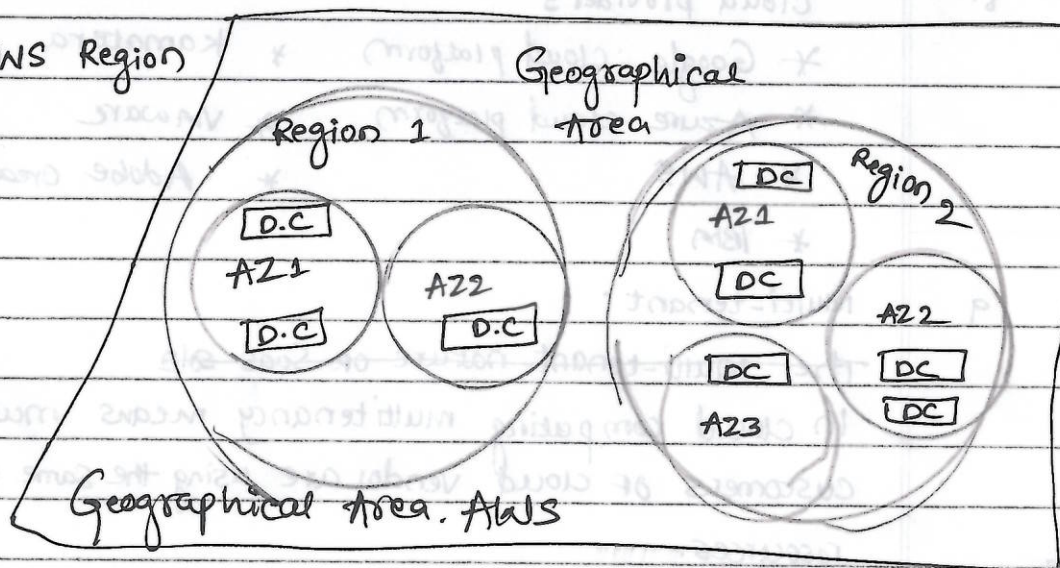 WS Region
Geographical
Area
Region 1
D.C
AZ1
D.C
AZ2
D.C
Region
2
DC
AZ1
DC
AZ2
DC
DC
DC
AZ3
Geographical Area. AWS